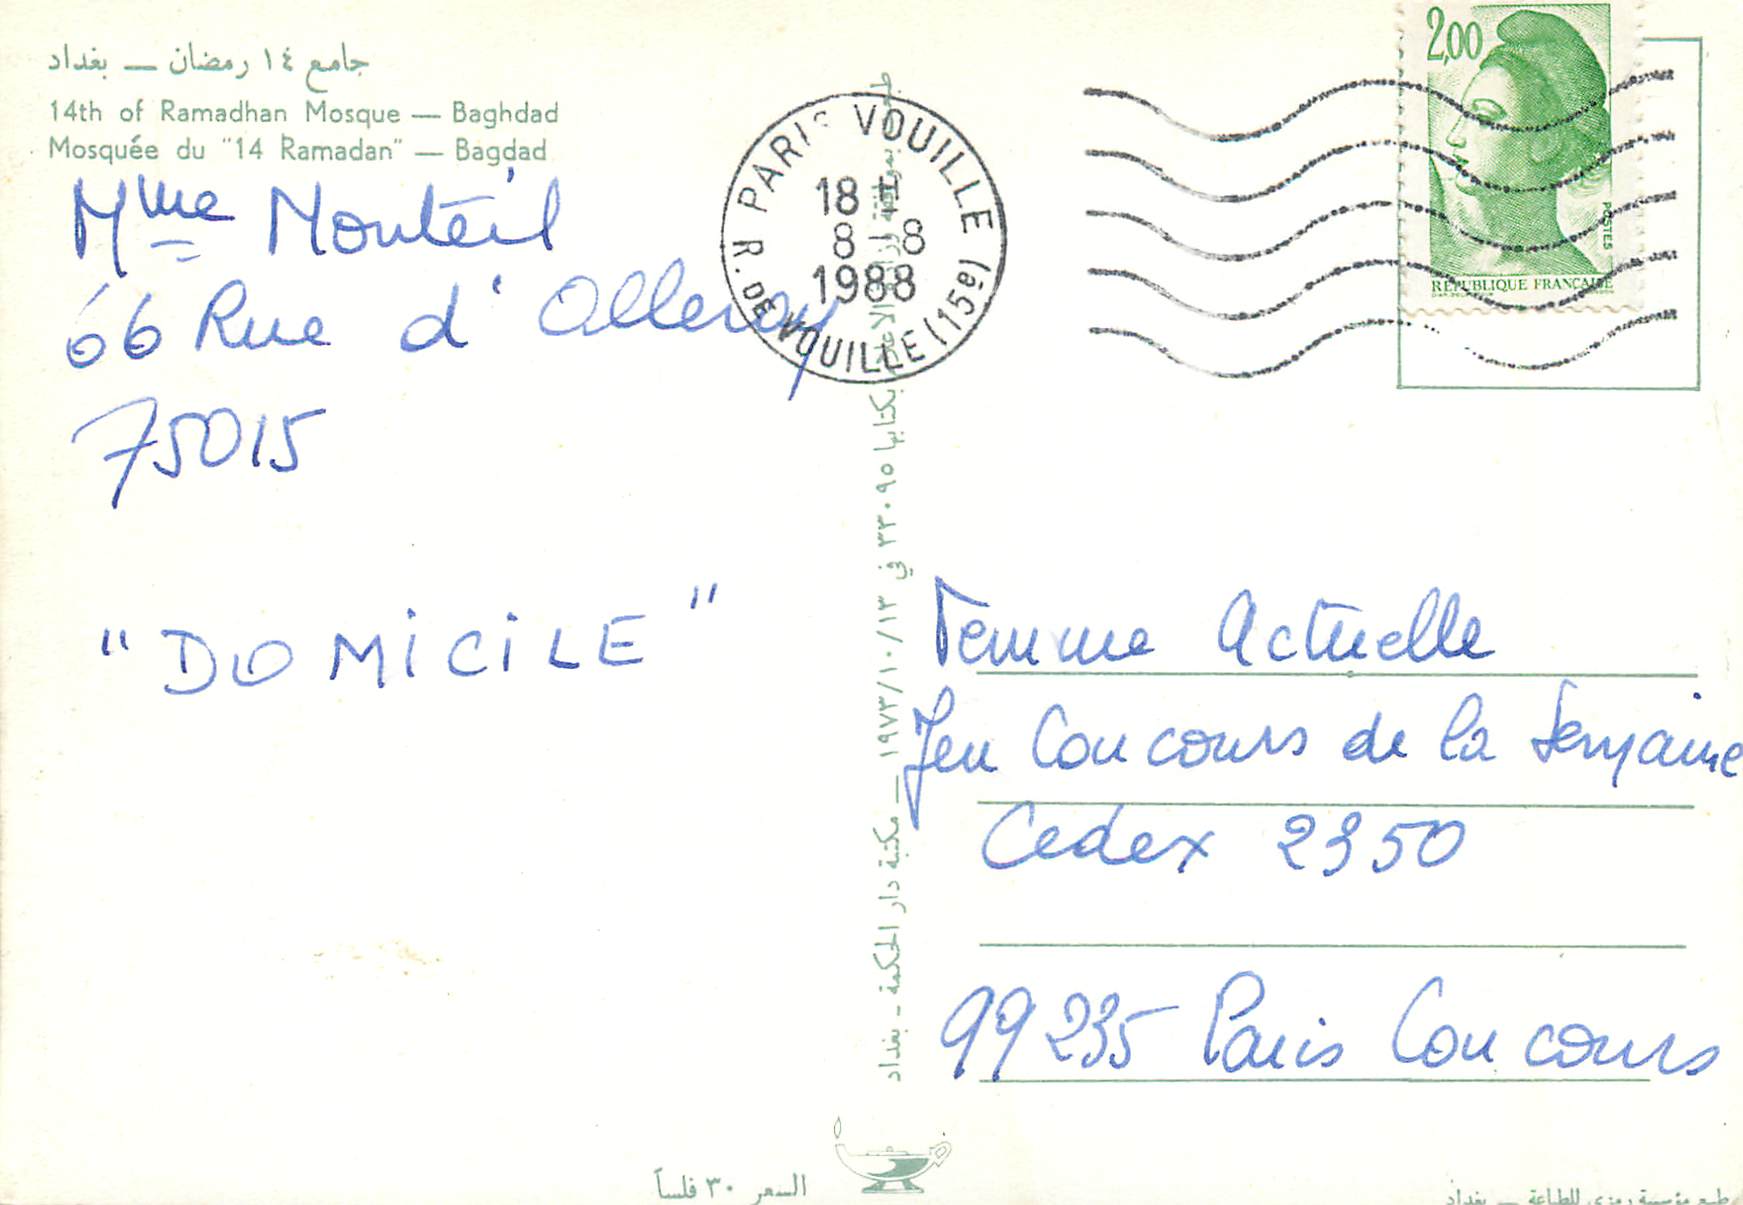 جامع ١٤ رمضان — بغداد
14th of Ramadhan Mosque — Baghdad
Mosquée du "14 Ramadan" — Bagdad
Mme Monteil
66 Rue d'Alleray
75015
"DOMICILE"
PARIS VOUILLE
18 H
8 - 8
1988
R. DE VOUILLE (15e)
2,00
POSTES
RÉPUBLIQUE FRANÇAISE
بكتابها ٣٣٠٩٥ في ١٩٧٣/١٠/١٣ — مكتبة دار الحكمة - بغداد
Femme Actuelle
Jeu Concours de la Semaine
Cedex 2350
99235 Paris Concours
السعر ٣٠ فلساً
طبع مؤسسة رمزي للطباعة — بغداد